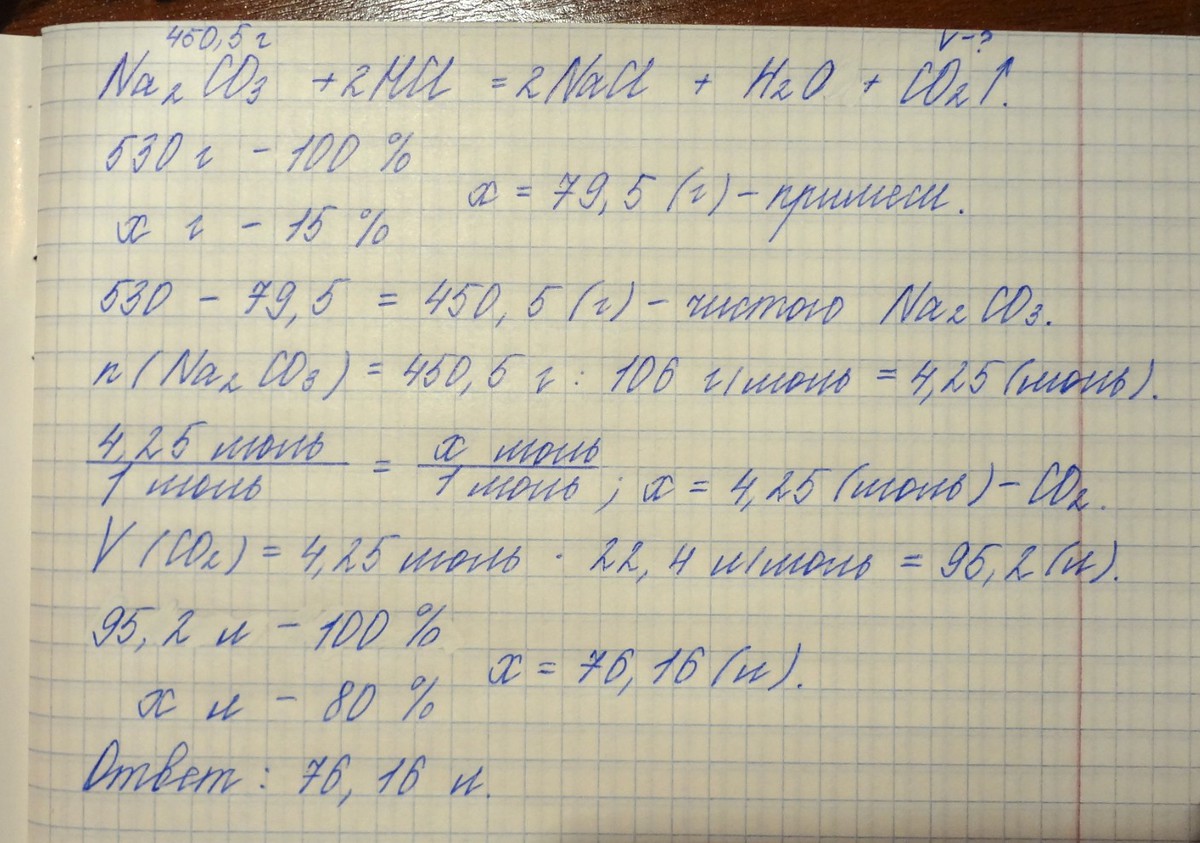 450,5 г V-?
Na2CO3 + 2HCl = 2NaCl + H2O + CO2↑.
530 г - 100 %
x = 79,5 (г) - примеси.
x г - 15 %
530 - 79,5 = 450,5 (г) - чистого Na2CO3.
n (Na2CO3) = 450,5 г : 106 г/моль = 4,25 (моль).
4,25 моль / 1 моль = x моль / 1 моль ; x = 4,25 (моль) - CO2.
V (CO2) = 4,25 моль · 22,4 л/моль = 95,2 (л).
95,2 л - 100 %
x = 76,16 (л).
x л - 80 %
Ответ : 76,16 л.